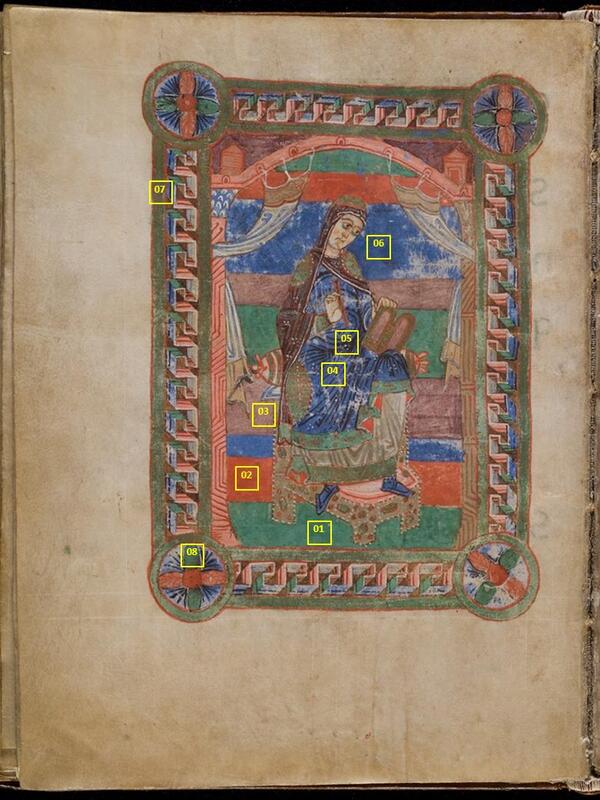 07
06
05
04
03
02
01
08